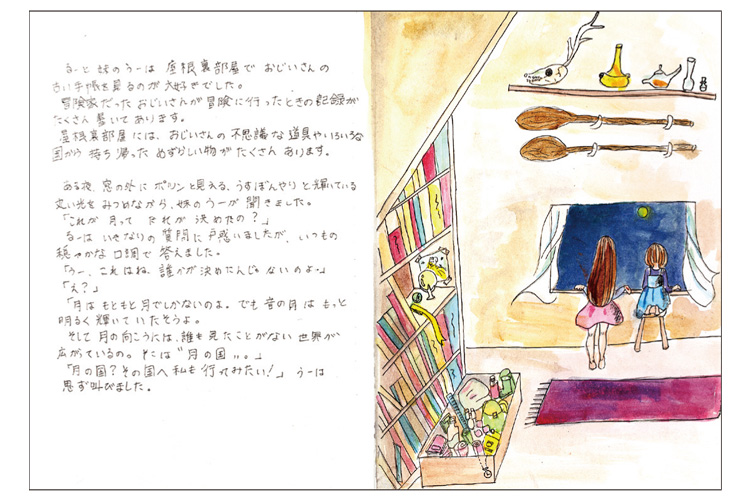 るーと妹のうーは 屋根裏部屋で おじいさんの
古い手帳を見るのが大好きでした。
冒険家だったおじいさんが冒険に行ったときの記録が
たくさん書いてあります。
屋根裏部屋には、おじいさんの不思議な道具やいろいろな
国から持ち帰った めずらしい物がたくさんあります。
ある夜、窓の外に ポツンと見える、うすぼんやりと輝いている
丸い光を みつめながら、妹のうーが聞きました。
「これが月って だれが 決めたの?」
るーは いきなりの 質問に戸惑いましたが、いつもの
穏やかな 口調で 答えました。
「うー、これはね、誰かが決めたんじゃ ないのよ。」
「え?」
「月は もともと月でしかないのよ。でも 昔の月は もっと
明るく 輝いて いたそうよ。
そして 月の向こうには、誰も 見たことがない 世界が
広がっているの。そこは“月の国”。」
「月の国?その国へ 私も 行ってみたい!」 うーは
思ず叫びました。